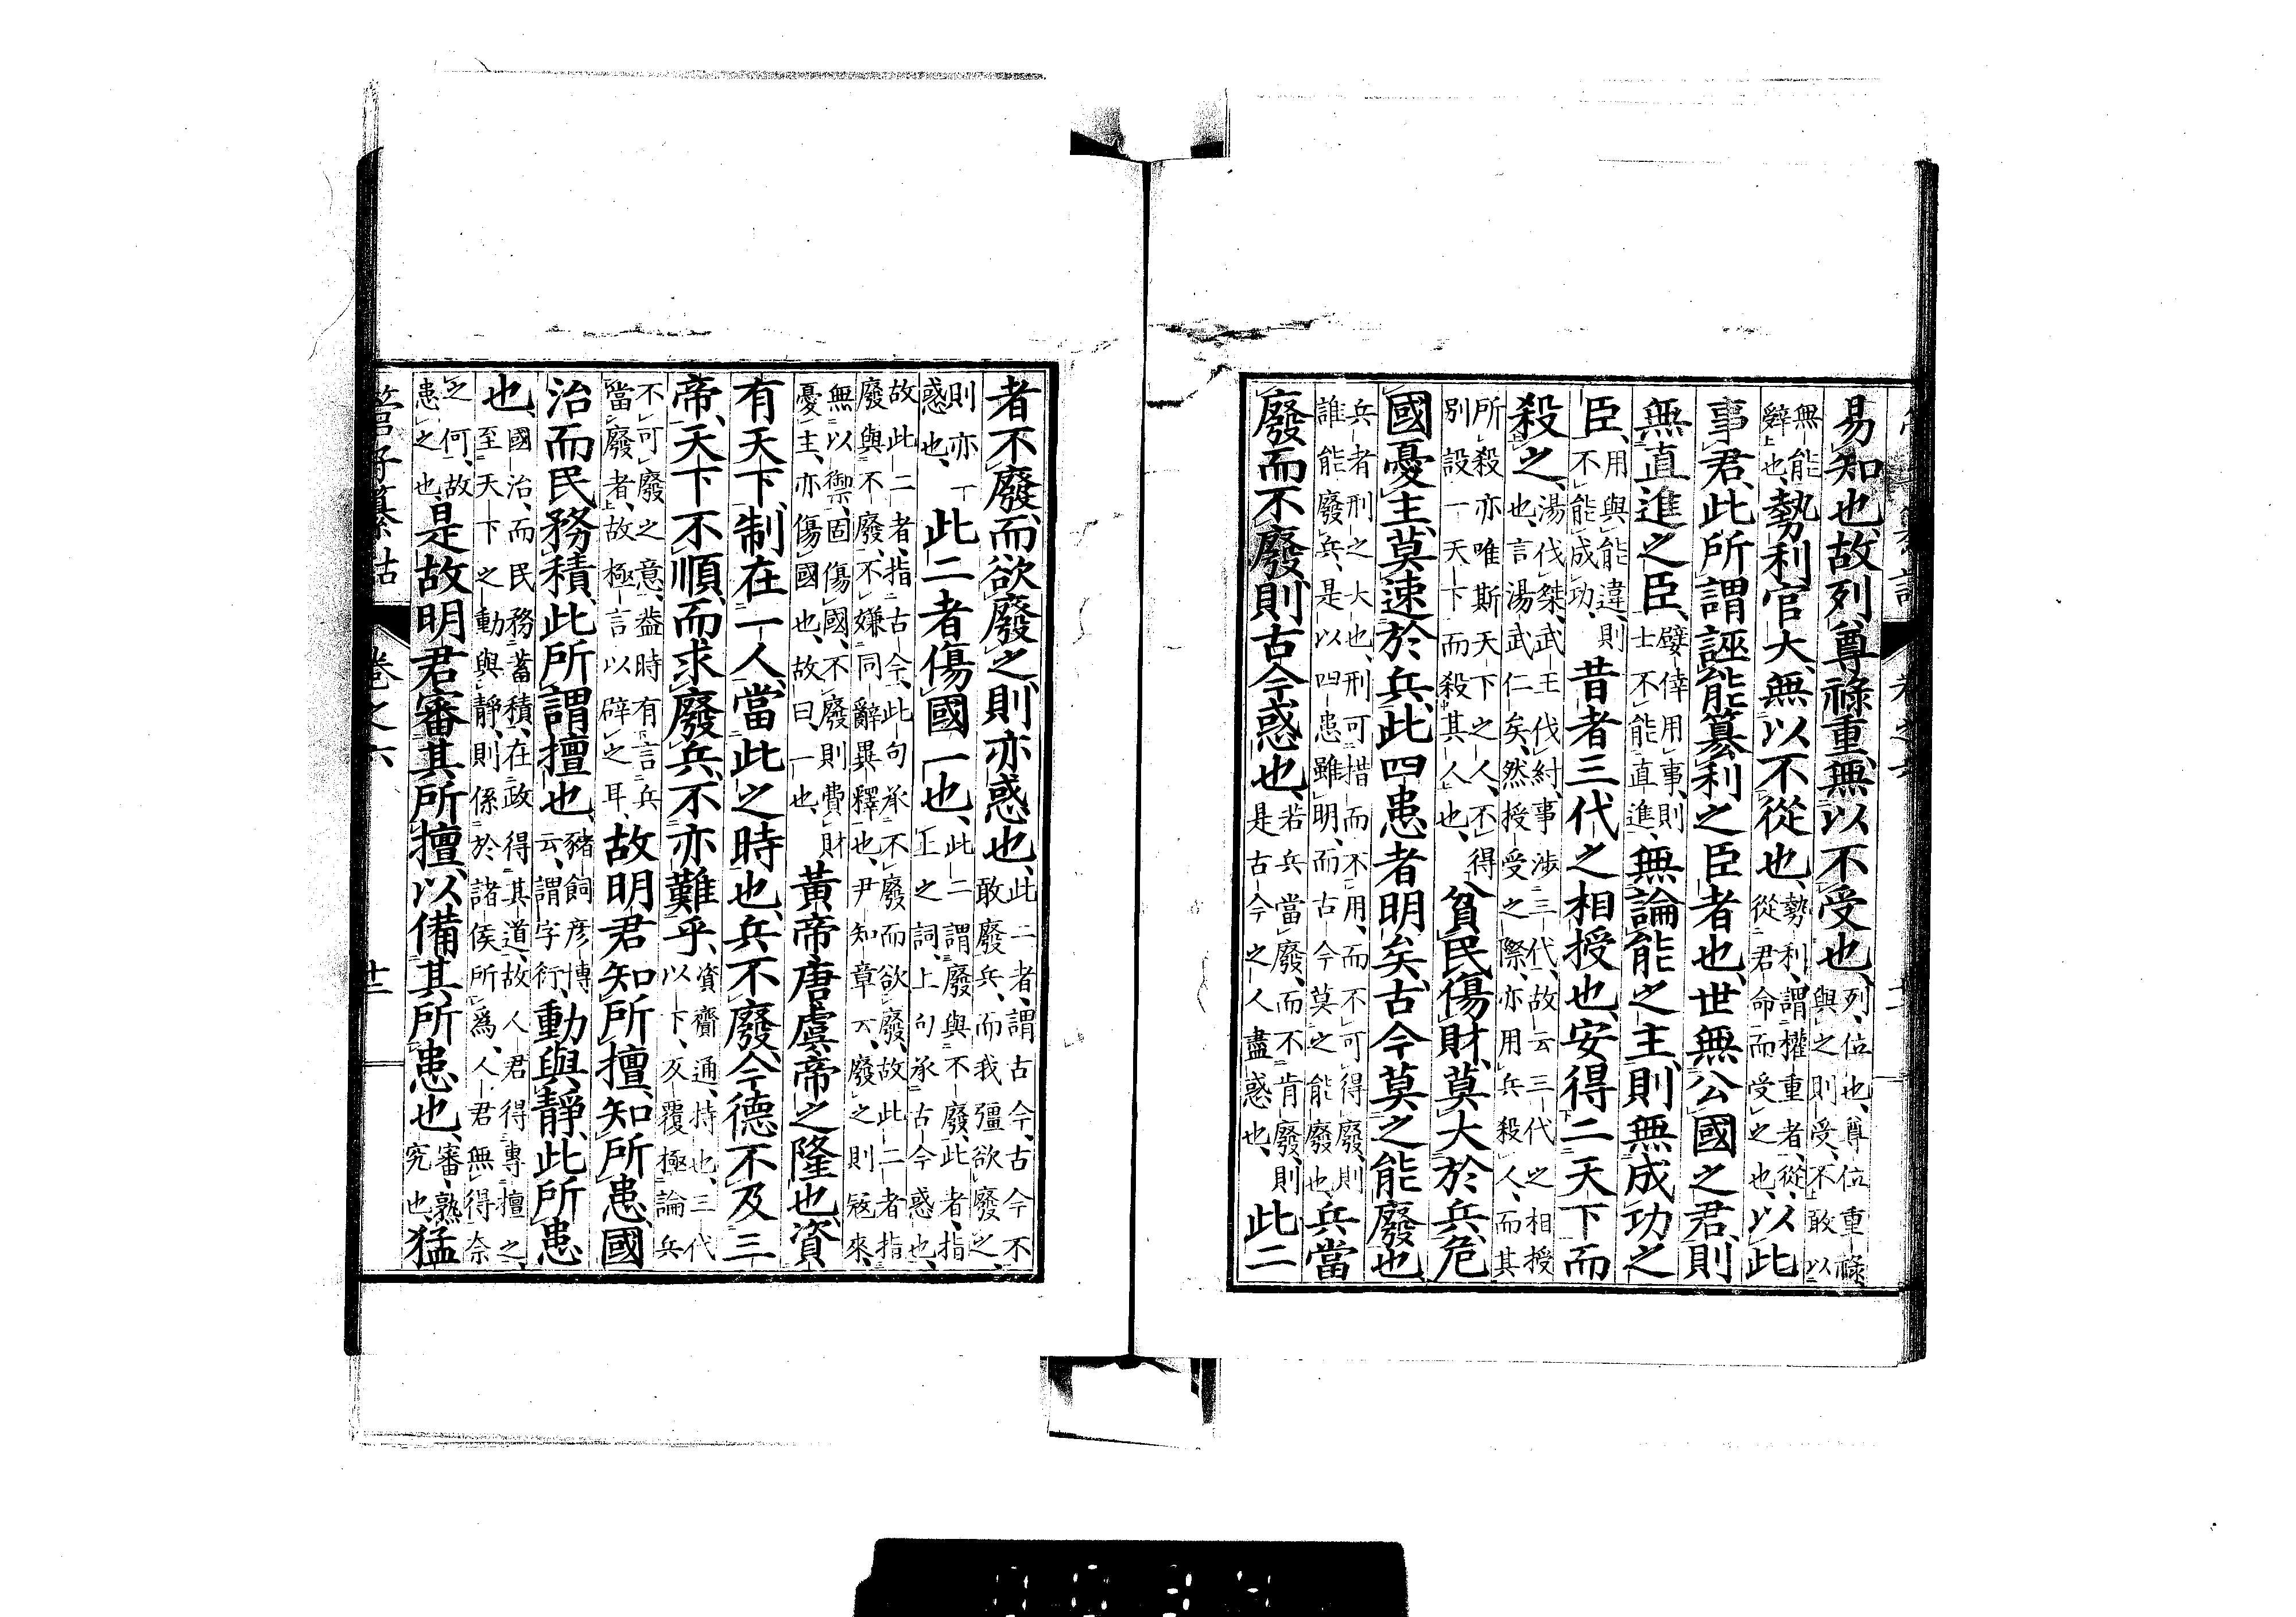 易知也、故列尊祿重、無以不受也、列位也、尊位重祿與之則受、不敢以
無能辭也、勢利官大、無以不從也、勢利、謂權重者、從、從君命而受之也、以此
事君、此所謂誣能篡利之臣者也、世無公國之君、則
無直進之臣、嬖倖用事、則士不能直進、無論能之主、則無成功之
臣、用與能違、則不能成功、昔者三代之相授也、安得二天下而
殺之、湯伐桀、武王伐紂、事涉三代、故云三代之相授也、言湯武仁矣、然授受之際、亦用兵殺人、而其
所殺亦唯斯天下之人、不得別設一天下而殺其人也、貧民傷財、莫大於兵、危
國憂主、莫速於兵、此四患者明矣、古今莫之能廢也
兵者刑之大也、刑可措而不用、而不可得廢、則誰能廢兵、是以四患雖明、而古今莫之能廢也、兵當
廢而不廢、則古今惑也、若兵當廢、而不肯廢、則是古今之人盡惑也、此二
者不廢、而欲廢之、則亦惑也、此二者、謂古今、古今不敢廢兵、而我彊欲廢之、
則亦惑也、此二者傷國一也、此二謂廢與不廢、此者、指正之詞、上句承古今惑也、
故此二者、指古今、此句承不廢而欲廢、故此二者指廢與不廢、不嫌同辭異釋也、尹知章云、廢之則寇來、
無以禦、固傷國、不廢則費財憂主、亦傷國也、故曰、一也、黃帝唐虞、帝之隆也、資
有天下、制在一人、當此之時也、兵不廢、今德不及三
帝、天下不順、而求廢兵、不亦難乎、資齎通、持也、三代以下、反覆極論兵
不可廢之意、葢時有言兵當廢者、故極言以辟之耳、故明君知所擅、知所患、國
治而民務積、此所謂擅也、豬飼彥博云、謂字衍、動與靜、此所患
也、國治而民務蓄積、在政得其道、故人君得專擅之、至天下之動與靜、則係於諸侯所爲、人君無得奈
之何、故患之也、是故明君審其所擅、以備其所患也、審、熟究也、猛
管子纂詁 卷之六 十二